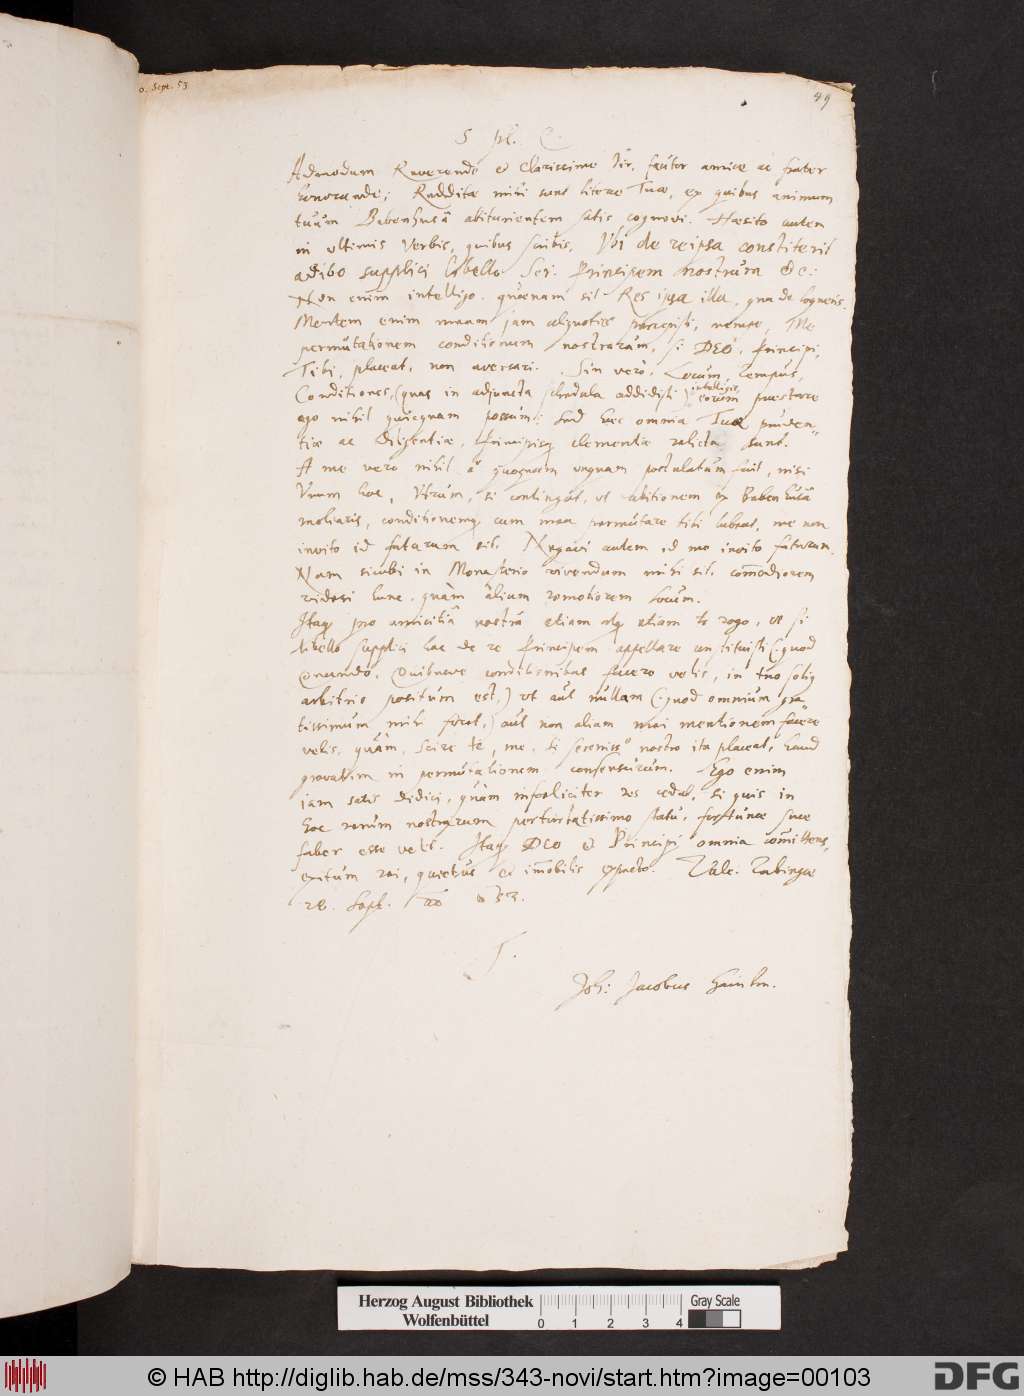 0. Sept. 53
49
S. Pl.
Admodum Reverende et Clarissime Vir, fautor amice ac frater
honorande; Redditae mihi sunt literae Tuae, ex quibus animum
tuum Bebenhusâ abiturientem satis cognovi. Haesito autem
in ultimis verbis, quibus scribis, Ubi de reipsa constiterit
adibo supplici libello Ser. Principem nostrum &c:
Non enim intelligo, quaenam sit Res ipsa illa, qua de loqueris.
Mentem enim meam jam aliquoties percepisti, nempe, Me
permutationem conditionum nostrarum, si DEO, Principi,
Tibi, placeat, non aversari. Sin vero, Locum, Tempus,
Conditiones, (quas in adjuncta schedula addidisti) intelligis, eorum praestare
ego nihil quicquam possum: Sed haec omnia Tuae pruden-
tiae ac diligentiae, Principisq clementiae relicta sunt.
A me vero nihil à quoquam unquam postulatum fuit, nisi
Unum hoc, Utrum, si contingat, ut abitionem ex Bebenhusâ
moliaris, conditionemq cum mea permutare tibi lubeat, me non
invito id futurum sit. Negavi autem id me invito futurum.
Nam sicubi in Monasterio vivendum mihi sit, com̄odiorem
videri hunc, quàm alium remotiorem locum.
Itaq pro amicitiâ nostrâ etiam atq etiam te rogo, ut si
libello supplici hac de re Principem appellare constituisti (: quod
Quando, Quibusve conditionibus facere velis, in tuo solius
arbitrio positum est,) ut aut nullam (: quod omnium gra-
tissimum mihi foret,) aut non aliam mei mentionem facere
velis, quàm, Scire te, me, si Sereniss.o nostro ita placeat, haud
gravatim in permutationem consensurum. Ego enim
jam satis didici, quàm infoeliciter res cedat, si quis in
hoc rerum nostrarum perturbatissimo statu, fortunae suae
faber esse velit. Itaq DEO et Principi omnia com̄ittens,
exitum rei, quietus et im̄obilis expecto. Vale. Tubingae
28. Sept. ao 53.
T.
Joh: Jacobus Hainlin.
Herzog August Bibliothek
Wolfenbüttel
0 1 2 3 4
Gray Scale
© HAB http://diglib.hab.de/mss/343-novi/start.htm?image=00103
DFG